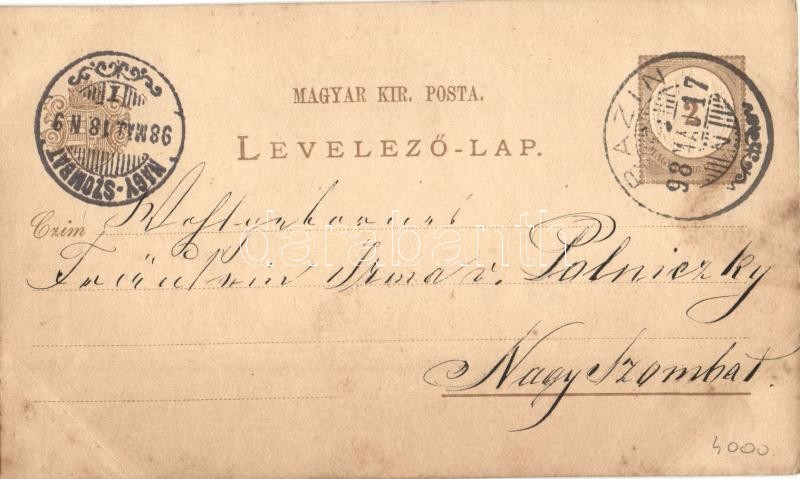 MAGYAR KIR. POSTA.
LEVELEZŐ-LAP.
NAGY-SZOMBAT
98 MÁJ. 18 N 9
BAZIN
98 MÁJ 17
2
Czim
Fräulein Irma v. Palniczky
Nagy Szombat.
4000
darabanth